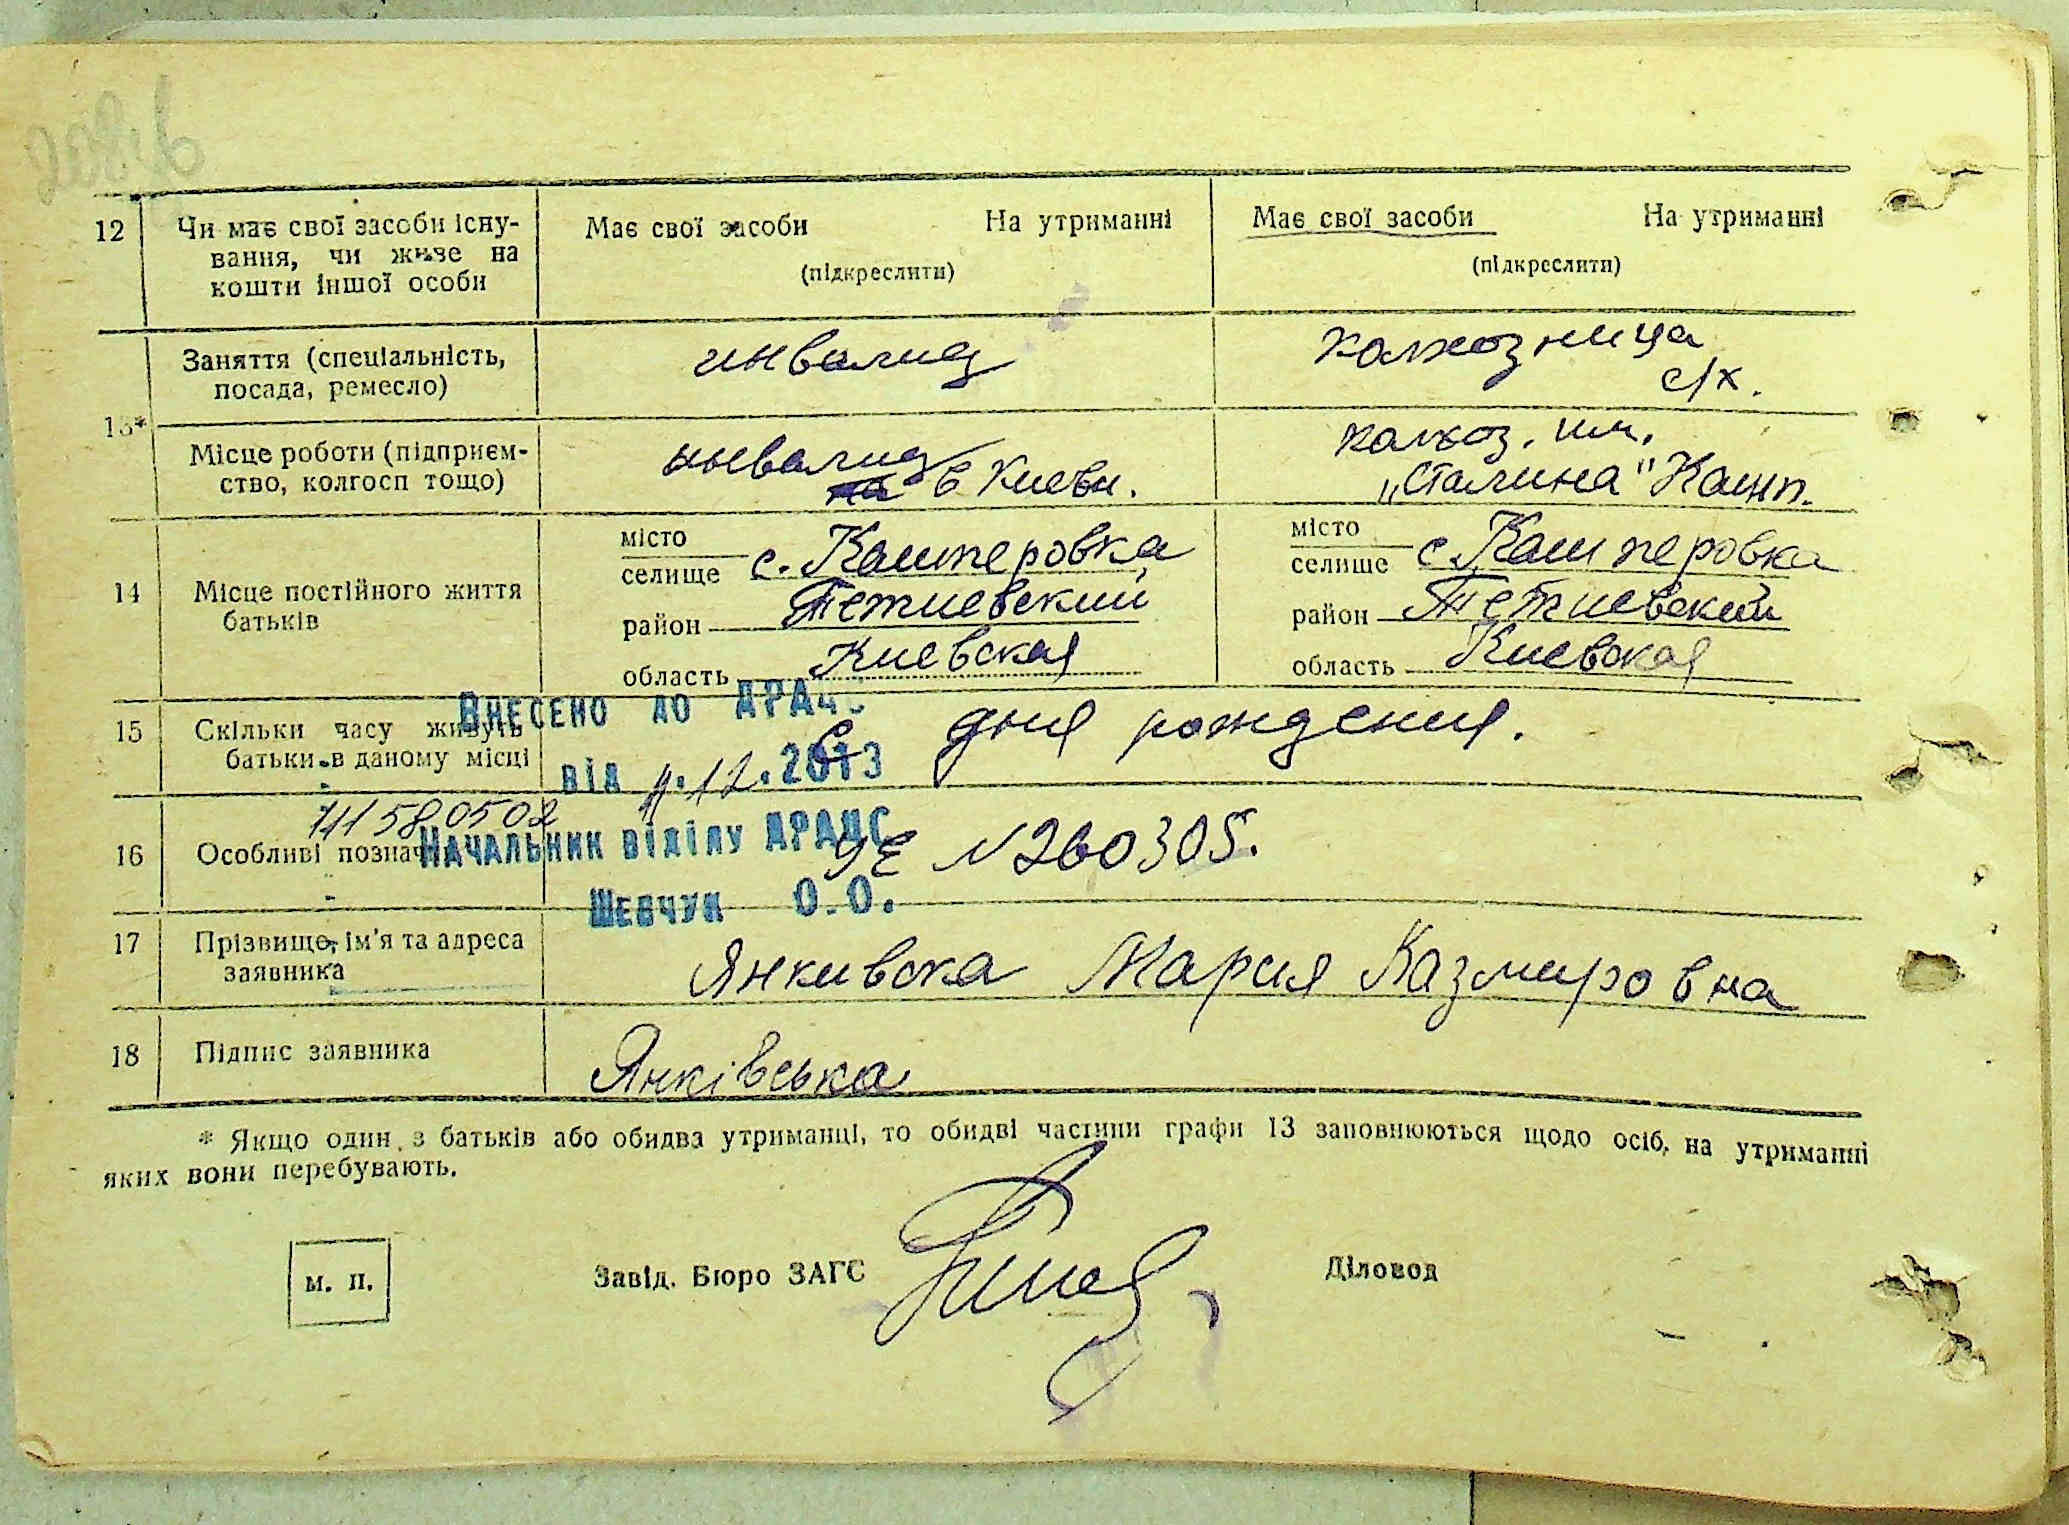 12 Чи має свої засоби існу- Має свої засоби На утриманні Має свої засоби На утриманні
вання, чи живе на (підкреслити) (підкреслити)
кошти іншої особи
Заняття (спеціальність, инвалид колхозница
посада, ремесло) с/х.
13*
Місце роботи (підприєм- инвалид колхоз. им.
ство, колгосп тощо) в Киеви. „Сталина" Кашп.
місто місто
селище с. Кашперовка селище с. Кашперовка
14 Місце постійного життя
батьків район Тетиевский район Тетиевский
область Киевская область Киевская
Внесено до ДРАЦС
15 Скільки часу живуть С дня рождения.
батьки в даному місці
від 11.12.2013
711580502
Начальник відділу ДРАЦС
16 Особливі позначки УЕ N260305.
Шевчук О.О.
17 Прізвище, ім'я та адреса
заявника Янкивска Мария Казмировна
18 Підпис заявника Янківська
* Якщо один з батьків або обидва утриманці, то обидві частини графи 13 заповнюються щодо осіб, на утриманні
яких вони перебувають.
м. п. Завід. Бюро ЗАГС Діловод